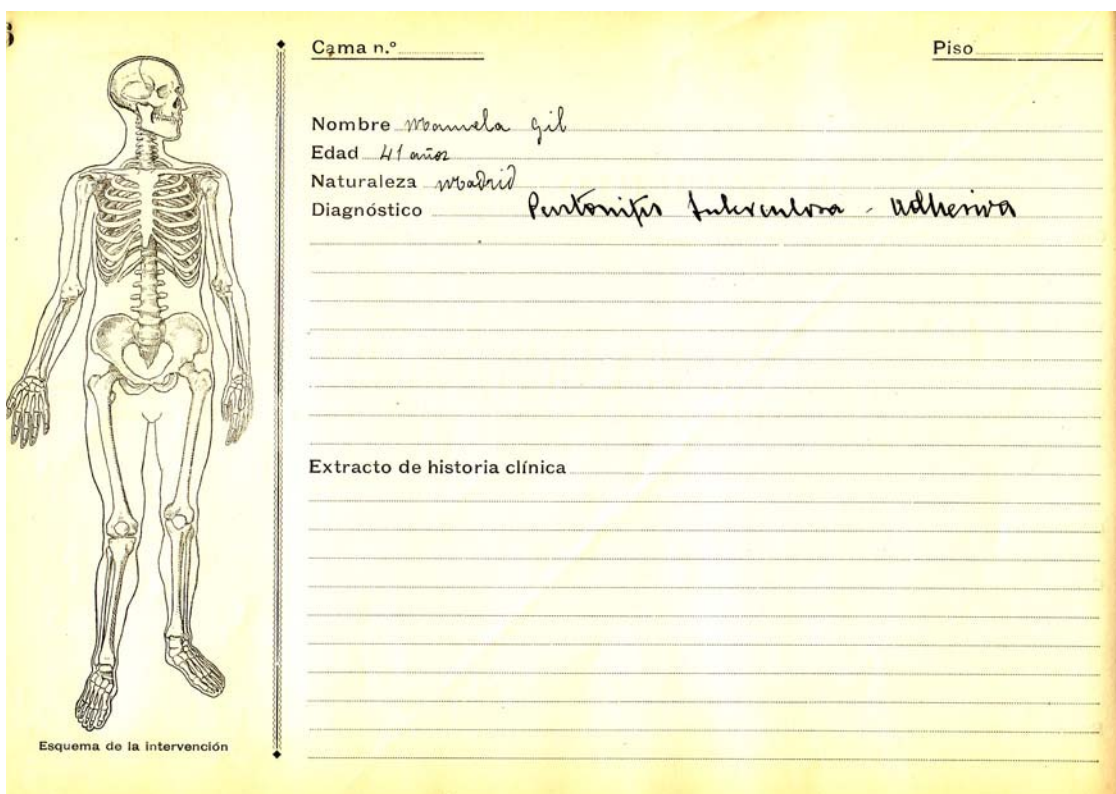 Cama n.º
Piso
Nombre Manuela Gil
Edad 41 años
Naturaleza Madrid
Diagnóstico Peritonitis tuberculosa - adhesiva
Extracto de historia clínica
Esquema de la intervención